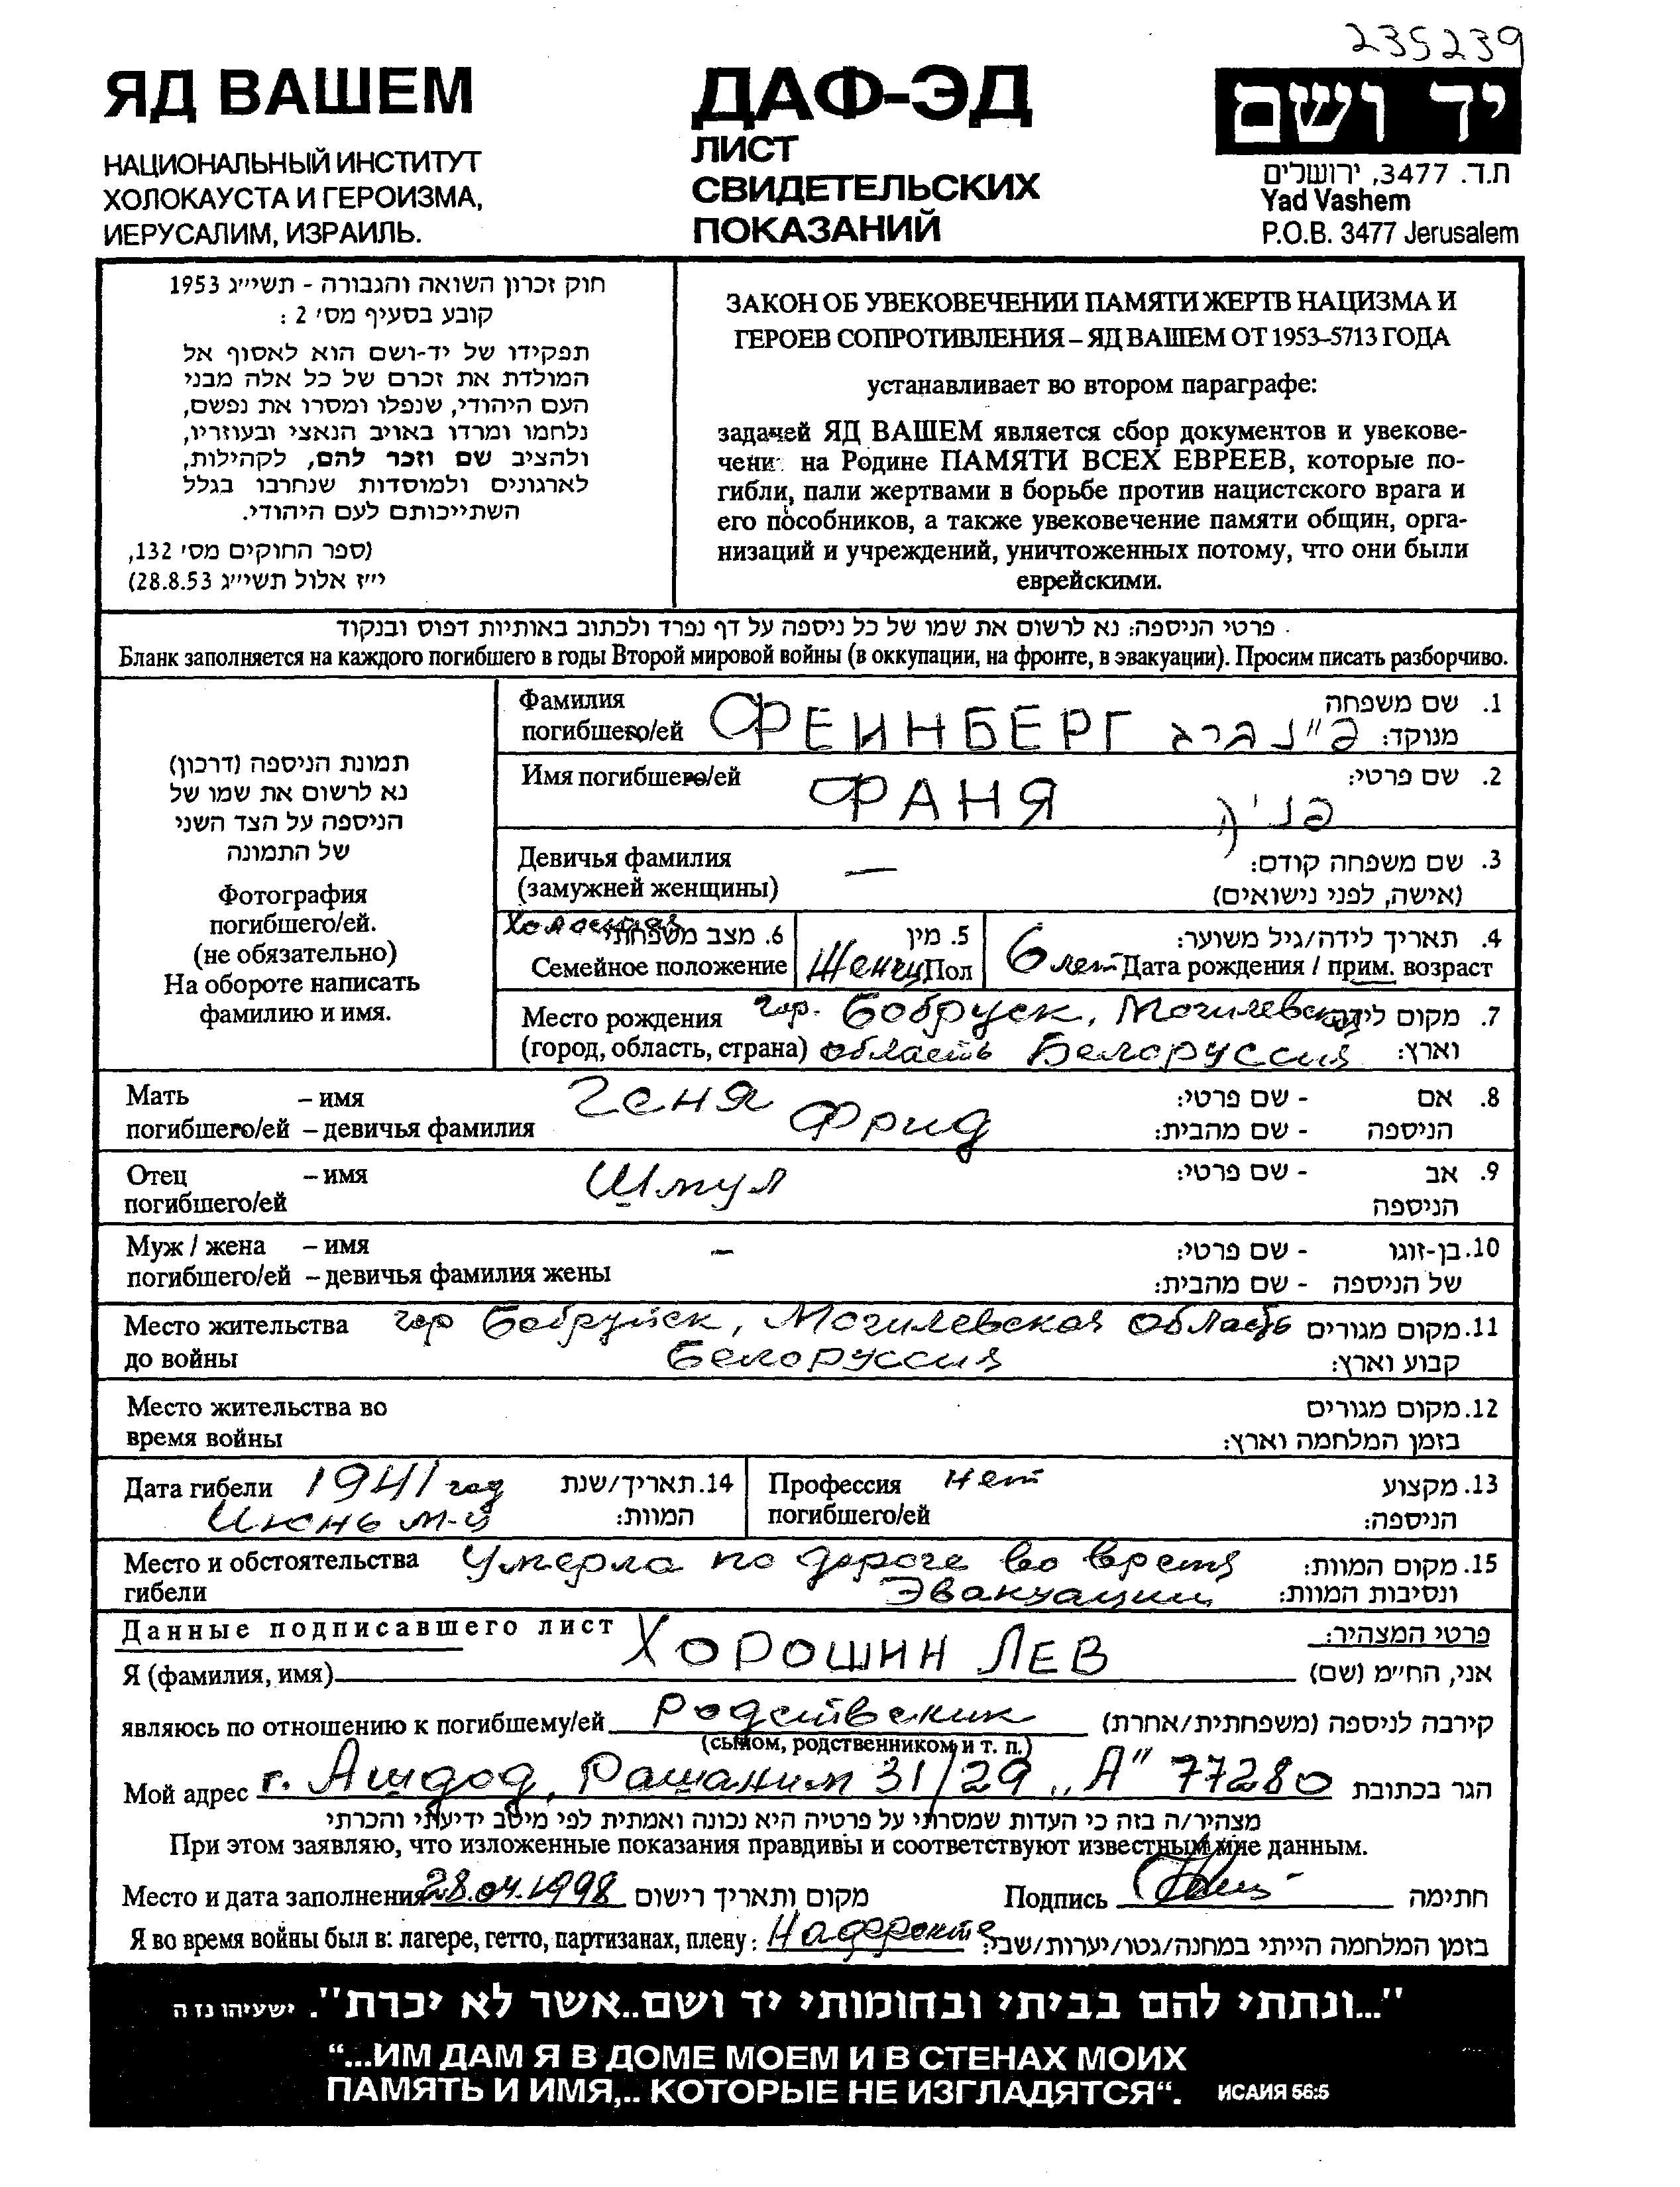 235239
ЯД ВАШЕМ
НАЦИОНАЛЬНЫЙ ИНСТИТУТ
ХОЛОКАУСТА И ГЕРОИЗМА,
ИЕРУСАЛИМ, ИЗРАИЛЬ.
ДАФ-ЭД
ЛИСТ
СВИДЕТЕЛЬСКИХ
ПОКАЗАНИЙ
יד ושם
ת.ד. 3477, ירושלים
Yad Vashem
P.O.B. 3477 Jerusalem
חוק זכרון השואה והגבורה - תשי״ג 1953
קובע בסעיף מס׳ 2 :
תפקידו של יד-ושם הוא לאסוף אל
המולדת את זכרם של כל אלה מבני
העם היהודי, שנפלו ומסרו את נפשם,
נלחמו ומרדו באויב הנאצי ובעוזריו,
ולהציב שם וזכר להם, לקהילות,
לארגונים ולמוסדות שנחרבו בגלל
השתייכותם לעם היהודי.
(ספר החוקים מס׳ 132,
י״ז אלול תשי״ג 28.8.53)
ЗАКОН ОБ УВЕКОВЕЧЕНИИ ПАМЯТИ ЖЕРТВ НАЦИЗМА И
ГЕРОЕВ СОПРОТИВЛЕНИЯ – ЯД ВАШЕМ ОТ 1953–5713 ГОДА
устанавливает во втором параграфе:
задачей ЯД ВАШЕМ является сбор документов и увекове-
чени на Родине ПАМЯТИ ВСЕХ ЕВРЕЕВ, которые по-
гибли, пали жертвами в борьбе против нацистского врага и
его пособников, а также увековечение памяти общин, орга-
низаций и учреждений, уничтоженных потому, что они были
еврейскими.
פרטי הניספה: נא לרשום את שמו של כל ניספה על דף נפרד ולכתוב באותיות דפוס ובנקוד
Бланк заполняется на каждого погибшего в годы Второй мировой войны (в оккупации, на фронте, в эвакуации). Просим писать разборчиво.
תמונת הניספה (דרכון)
נא לרשום את שמו של
הניספה על הצד השני
של התמונה
Фотография
погибшего/ей.
(не обязательно)
На обороте написать
фамилию и имя.
Фамилия
погибшего/ей ФЕИНБЕРГ פיינברג
1. שם משפחה
מנוקד:
Имя погибшего/ей ФАНЯ
2. שם פרטי:
Девичья фамилия
(замужней женщины) —
3. שם משפחה קודם:
(אישה, לפני נישואים)
Холостая
6. מצב משפחתי
Семейное положение
5. מין
Пол
4. תאריך לידה/גיל משוער:
6 лет Дата рождения / прим. возраст
Место рождения гор. Бобруск, Могилевская
(город, область, страна) область Белоруссия
7. מקום לידה
וארץ:
Мать – имя Геня
погибшего/ей – девичья фамилия Фрид
8. אם - שם פרטי:
הניספה - שם מהבית:
Отец – имя Шмул
погибшего/ей
9. אב - שם פרטי:
הניספה
Муж / жена – имя –
погибшего/ей – девичья фамилия жены
10. בן-זוגו - שם פרטי:
של הניספה - שם מהבית:
Место жительства гор Бобруйск, Могилевская область
до войны Белоруссия
11. מקום מגורים
קבוע וארץ:
Место жительства во
время войны
12. מקום מגורים
בזמן המלחמה וארץ:
Дата гибели 1941 год
Июнь м-ц
14. תאריך/שנת
המוות:
Профессия нет
погибшего/ей
13. מקצוע
הניספה:
Место и обстоятельства Умерла по дороге во время
гибели Эвакуации
15. מקום המוות:
ונסיבות המוות:
Данные подписавшего лист
פרטי המצהיר:
Я (фамилия, имя) ХОРОШИН ЛЕВ אני, החי״מ (שם)
являюсь по отношению к погибшему/ей Родственик קירבה לניספה (משפחתית/אחרת)
(сыном, родственником и т. п.)
Мой адрес г. Ашдод, Рашаним 31/29 „А" 77280 הגר בכתובת
מצהיר/ה בזה כי העדות שמסרתי על פרטיה היא נכונה ואמתית לפי מיטב ידיעתי והכרתי
При этом заявляю, что изложенные показания правдивы и соответствуют известным мне данным.
Место и дата заполнения 28.04.1998 מקום ותאריך רישום
Подпись חתימה
Я во время войны был в: лагере, гетто, партизанах, плену: На фронте בזמן המלחמה הייתי במחנה/גטו/יערות/שבי:
"...ונתתי להם בביתי ובחומותי יד ושם..אשר לא יכרת". ישעיהו נז ה
“...ИМ ДАМ Я В ДОМЕ МОЕМ И В СТЕНАХ МОИХ
ПАМЯТЬ И ИМЯ,.. КОТОРЫЕ НЕ ИЗГЛАДЯТСЯ“. ИСАИЯ 56:5